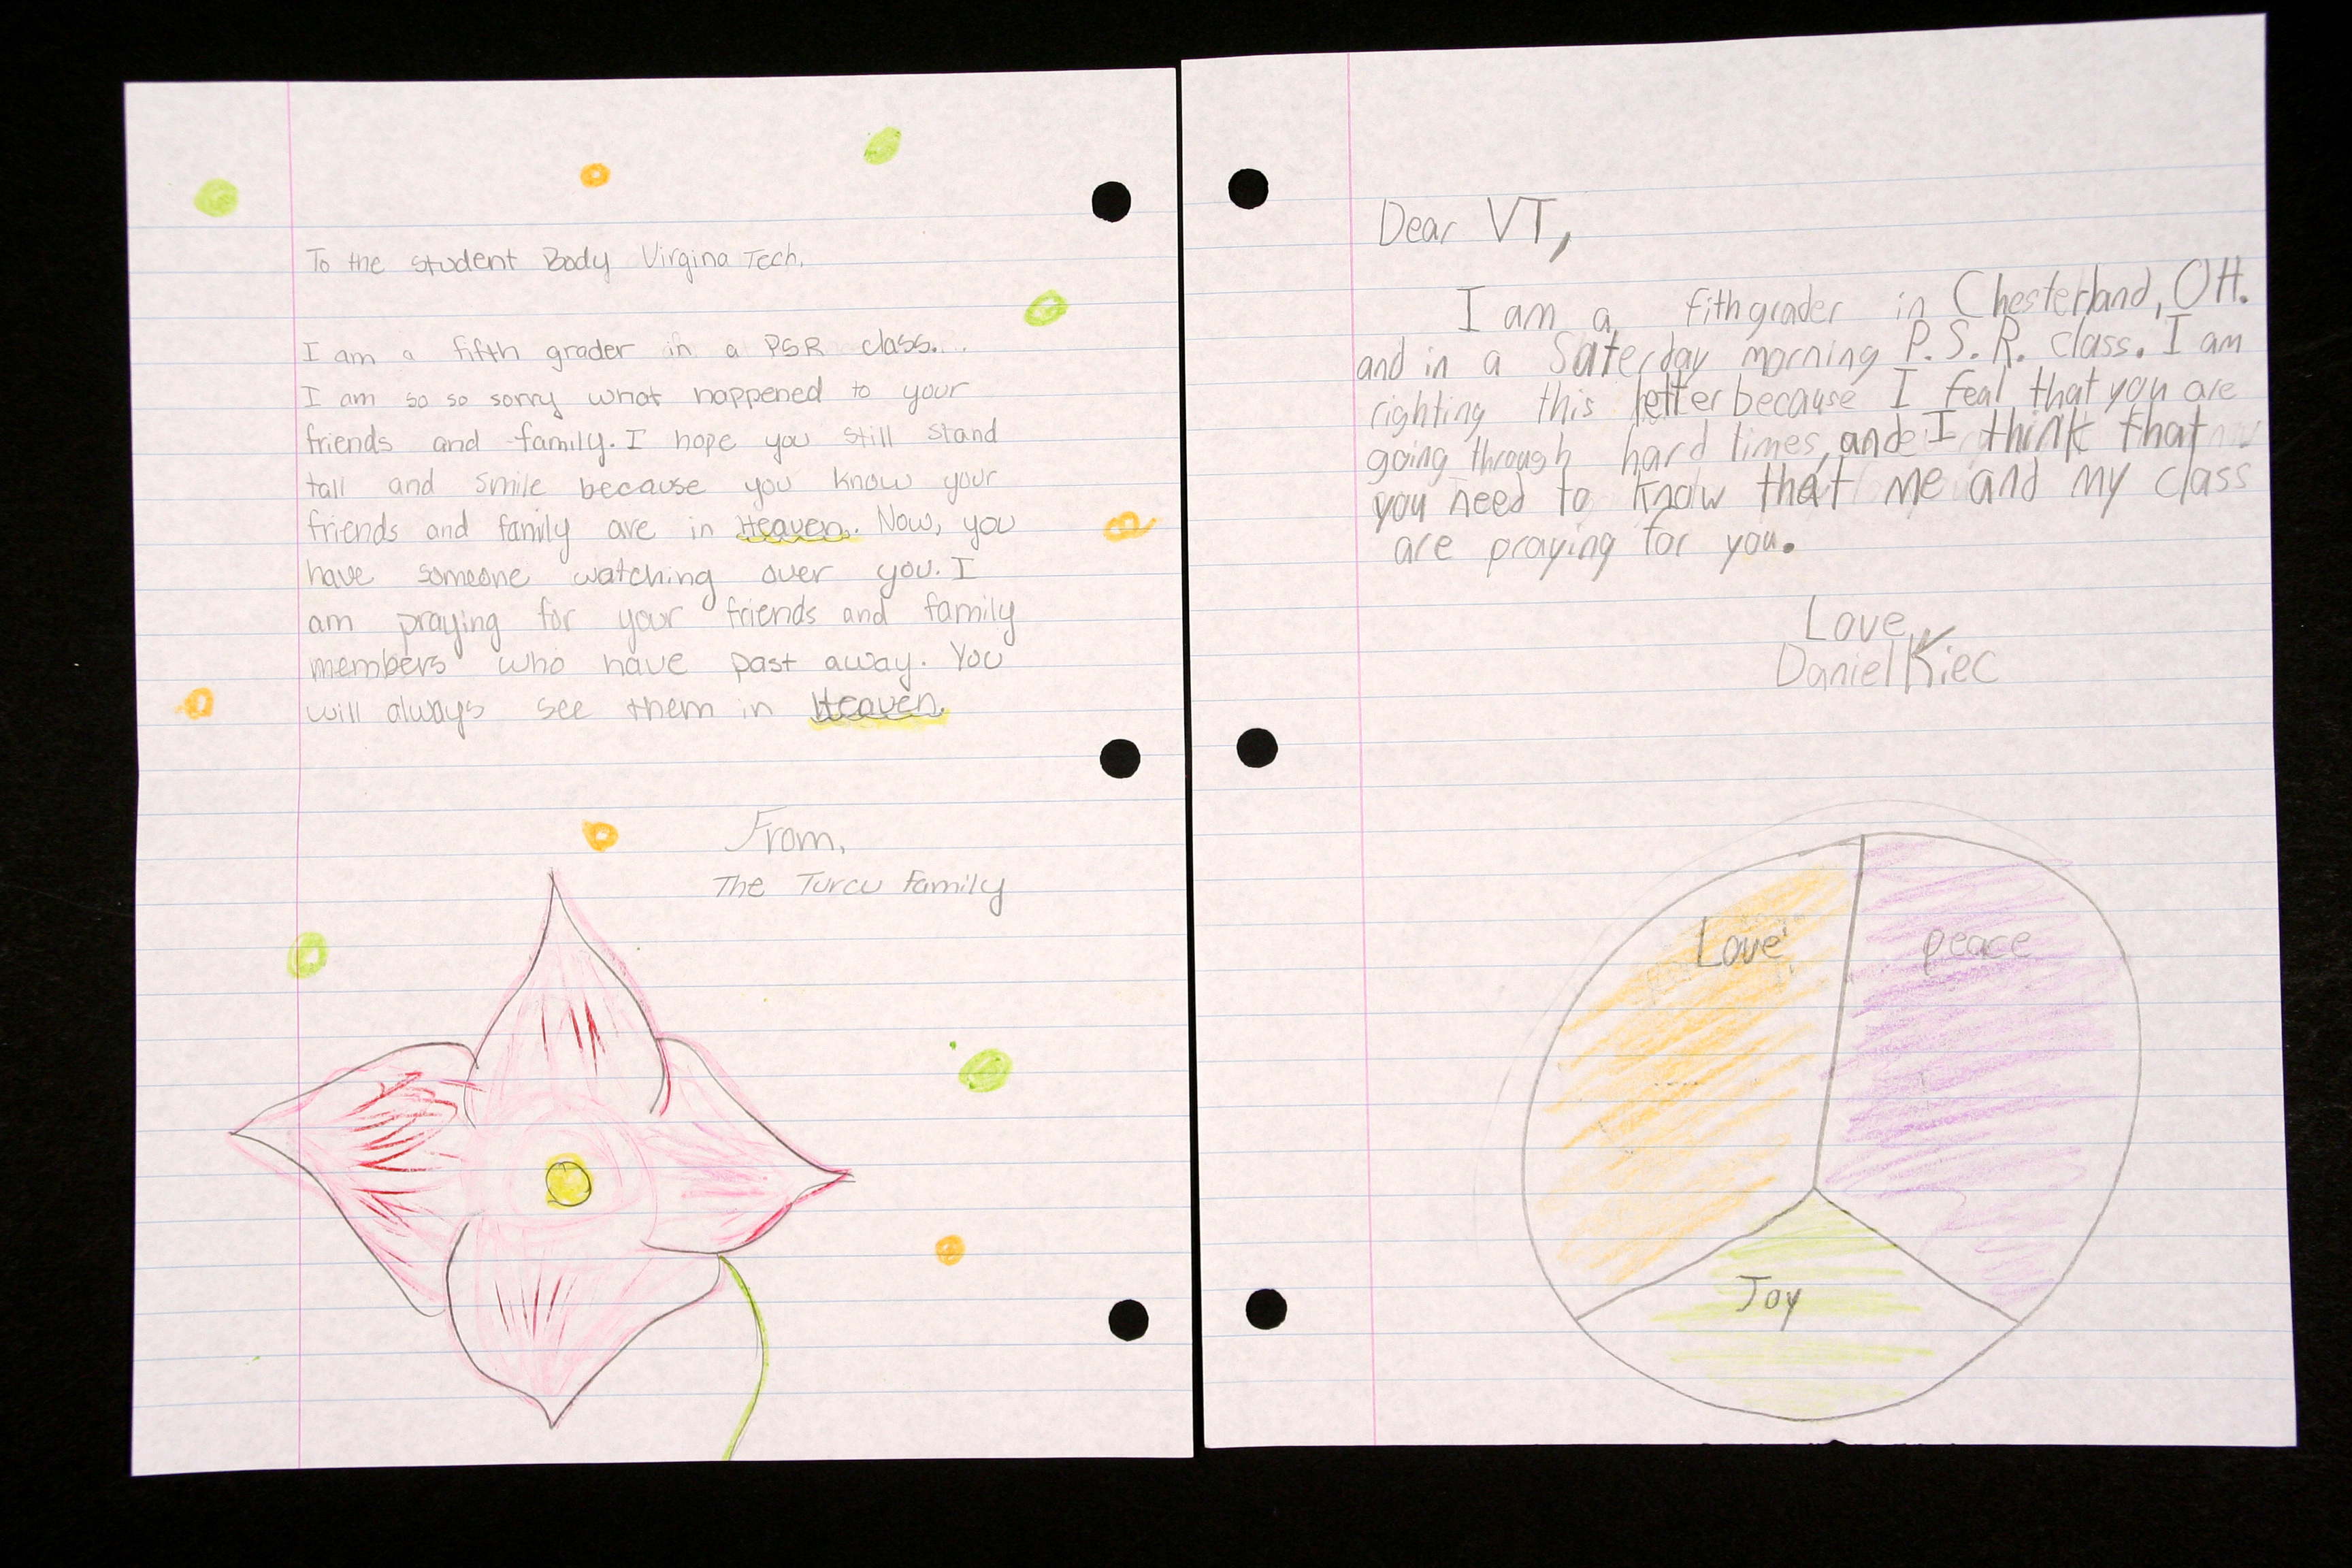 To the student Body Virgina Tech,
I am a fifth grader in a PSR class...
I am so so sorry what happened to your
friends and family. I hope you still stand
tall and smile because you know your
friends and family are in Heaven. Now, you
have someone watching over you. I
am praying for your friends and family
members who have past away. You
will always see them in Heaven.
From,
The Turcu Family
Dear VT,
I am a fith grader in Chesterland, OH.
and in a Saterday morning P.S.R. class. I am
righting this letter because I feal that you are
going through hard times, and I think that
you need to know that me and my class
are praying for you.
Love,
Daniel Kiec
Love
peace
Joy